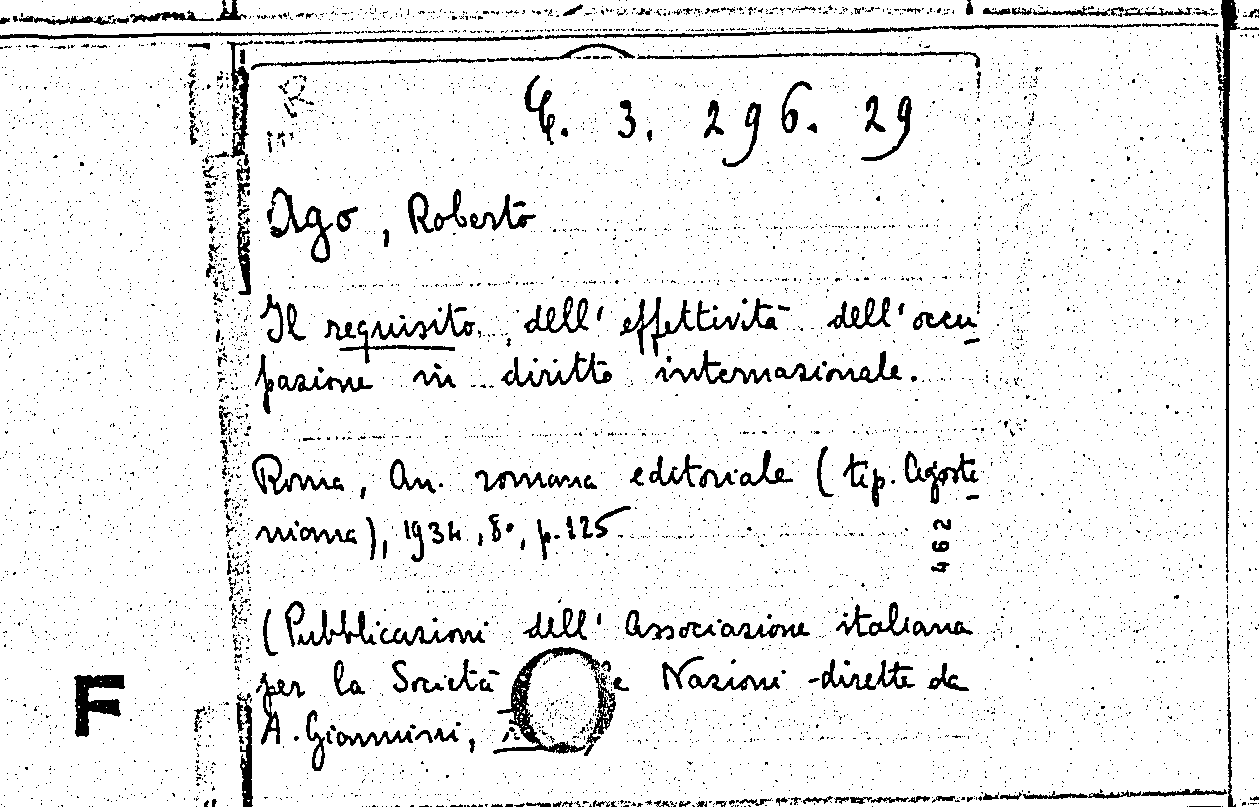 R
4. 3. 296. 29
Ago, Roberto
Il requisito dell' effettività dell' occu
pazione in diritto internazionale.
Roma, An. romana editoriale (tip. Agosti
niana), 1934, 8°, p. 125
462
(Pubblicazioni dell' Associazione italiana
per la Società e Nazioni - dirette da
A. Giannini,
F